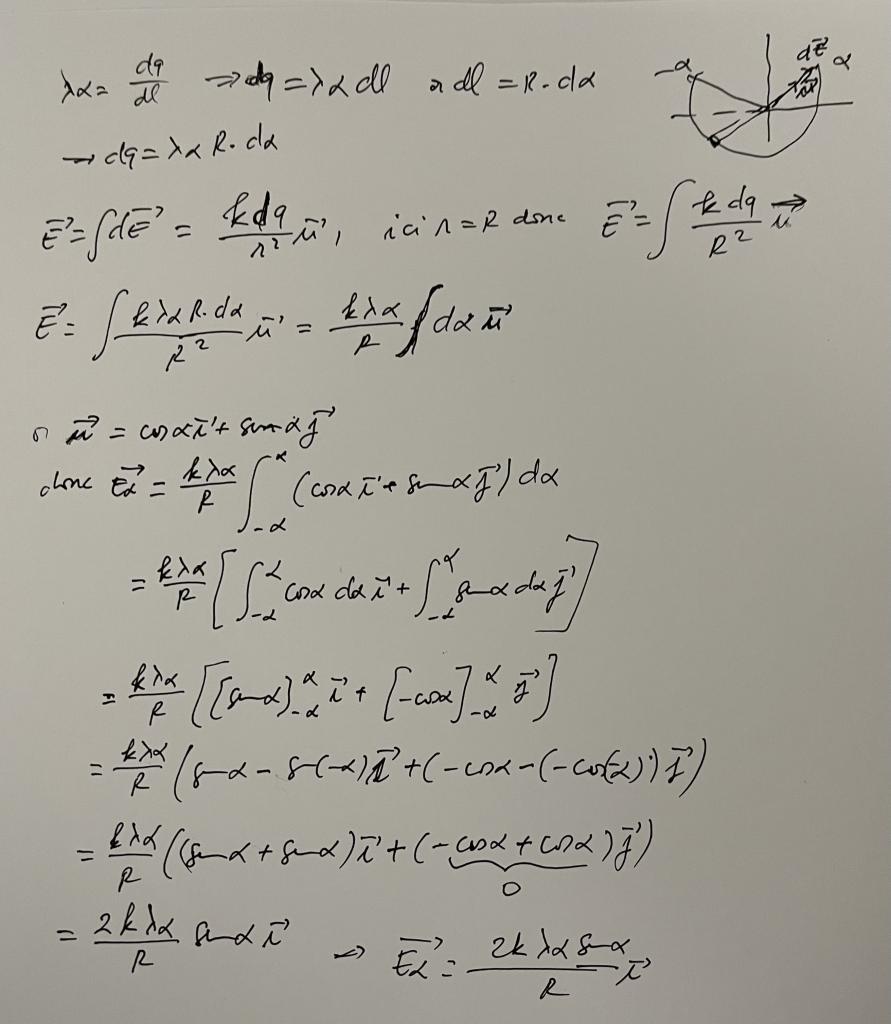 λα = dq/dl ⇒ dq = λα dl or dl = R·dα
-α dE⃗ α
→ dq = λα R·dα
E⃗ = ∫dE⃗ = k dq/r² u⃗, ici r = R donc E⃗ = ∫ k dq/R² u⃗
E⃗ = ∫ kλα R·dα/R² u⃗ = kλα/R ∫ dα u⃗
or u⃗ = cosα i⃗ + sinα j⃗
donc E⃗α = kλα/R ∫_{-α}^{α} (cosα i⃗ + sinα j⃗) dα
= kλα/R [∫_{-α}^{α} cosα dα i⃗ + ∫_{-α}^{α} sinα dα j⃗]
= kλα/R ([sinα]_{-α}^{α} i⃗ + [-cosα]_{-α}^{α} j⃗)
= kλα/R (sinα - sin(-α) i⃗ + (-cosα - (-cos(-α))) j⃗)
= kλα/R ((sinα + sinα) i⃗ + (-cosα + cosα) j⃗)
0
= 2kλα/R sinα i⃗ → E⃗α = 2kλα sinα/R i⃗